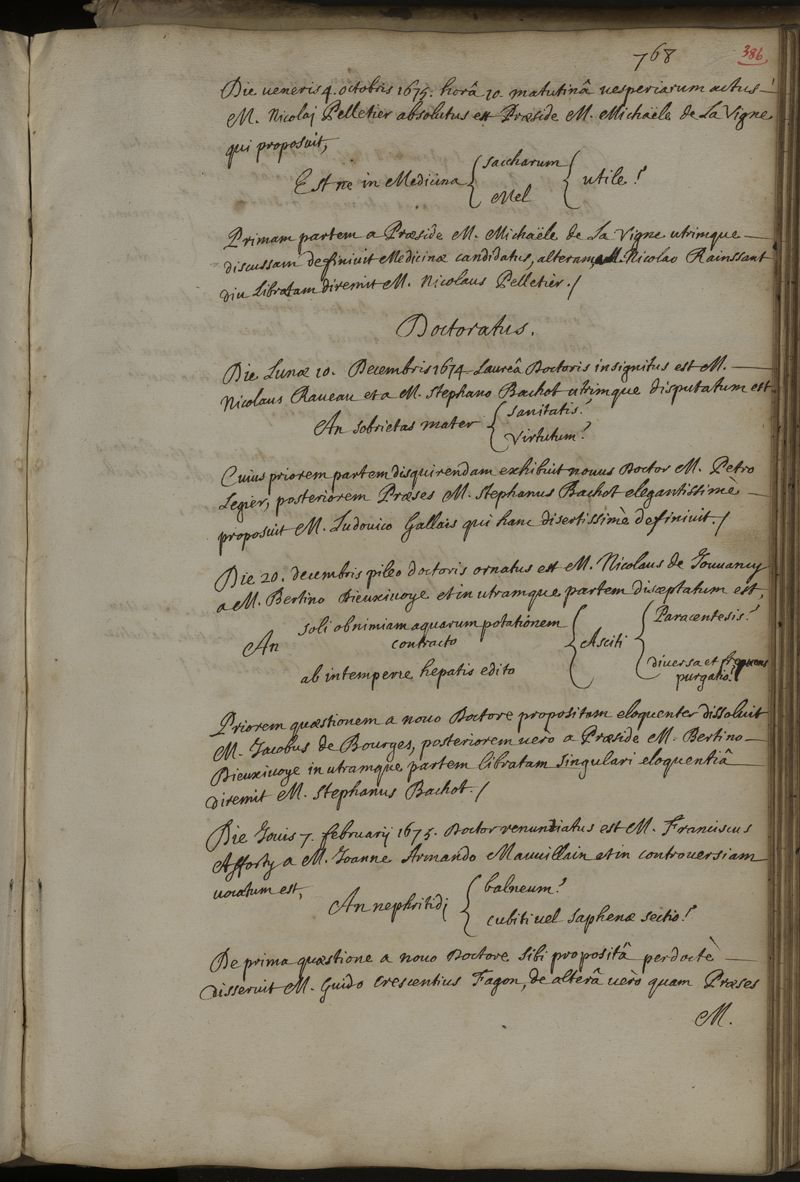 768
386
Die veneris 4. octobris 1675. horâ 10. matutinâ vesperiarum actus
M. Nicolaj Pelletier absolutus est Præside M. Michaële de La Vigne
qui proposuit,
Est ne in Medicina { saccharum / Mel } { utile?
Primam partem a Præside M. Michaële de La Vigne utrimque
discussam definivit Medicinæ candidatus, alteram, M. Nicolao Rainssant
diu libratam diremit M. Nicolaus Pelletier./
Doctoratus.
Die Lunæ 10. Decembris 1674 Laureâ Doctoris insignitus est M.
Nicolaus Raveau et a M. Stephano Bachot utrimque disputatum est
An sobrietas mater { sanitatis? / Virtutum?
Cuius priorem partem disquirendam exhibuit novus Doctor M. Petro
Legier, posteriorem Præses M. Stephanus Bachot elegantissimè
proposuit M. Ludovico Gallais qui hanc disertissimè definivit./
Die 20. decembris pileo doctoris ornatus est M. Nicolaus de Jouvancy
a M. Bertino Dieuxivoye et in utramque partem disceptatum est,
An soli ob nimiam aquarum potationem contracto / ab intemperie hepatis edito { Asciti { Paracentesis? / diversa et frequens purgatio?
Priorem quæstionem a novo Doctore propositam eloquenter dissolvit
M. Jacobus de Bourges, posteriorem verò a Præside M. Bertino
Dieuxivoye in utramque partem libratam singulari eloquentiâ
diremit M. Stephanus Bachot./
Die Jovis 7. februarij 1675. Doctor renuntiatus est M. Franciscus
Afforty a M. Joanne Armando Mauvillain et in controversiam
vocatum est,
An nephritidj { balneum? / cubiti vel saphenæ sectio?
De prima quæstione a novo Doctore sibi propositâ perdoctè
disseruit M. Guido Crescentius Fagon, de alterâ verò quam Præses
M.